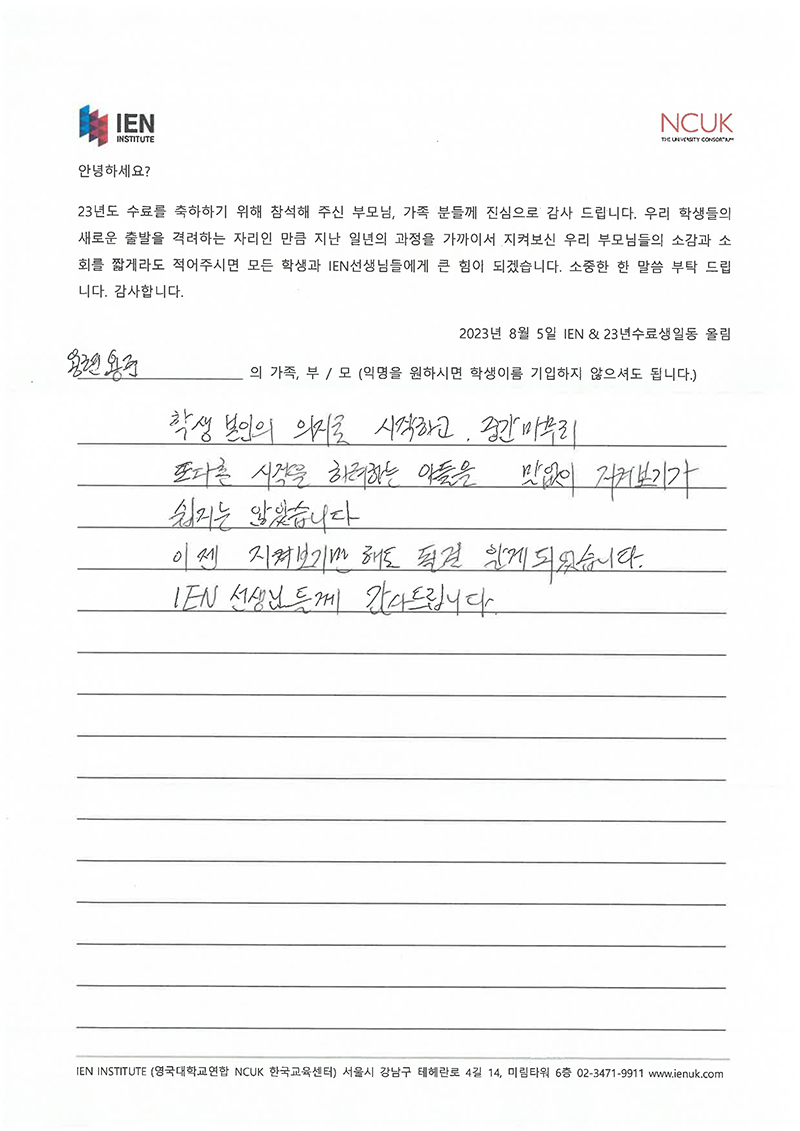 IEN
INSTITUTE
NCUK
THE UNIVERSITY CONSORTIUM
안녕하세요?
23년도 수료를 축하하기 위해 참석해 주신 부모님, 가족 분들께 진심으로 감사 드립니다. 우리 학생들의
새로운 출발을 격려하는 자리인 만큼 지난 일년의 과정을 가까이서 지켜보신 우리 부모님들의 소감과 소
회를 짧게라도 적어주시면 모든 학생과 IEN선생님들에게 큰 힘이 되겠습니다. 소중한 한 말씀 부탁 드립
니다. 감사합니다.
2023년 8월 5일 IEN & 23년수료생일동 올림
의 가족, 부 / 모 (익명을 원하시면 학생이름을 기입하지 않으셔도 됩니다.)
학생 본인의 의지로 시작하고, 중간마무리
또다른 시작을 하려하는 아들을 지켜보기가
쉽지는 않았습니다
이젠 지켜보기만 해도 될걸 알게되었습니다.
IEN 선생님들께 감사드립니다.
IEN INSTITUTE (영국대학교연합 NCUK 한국교육센터) 서울시 강남구 테헤란로 4길 14, 미림타워 6층 02-3471-9911 www.ienuk.com